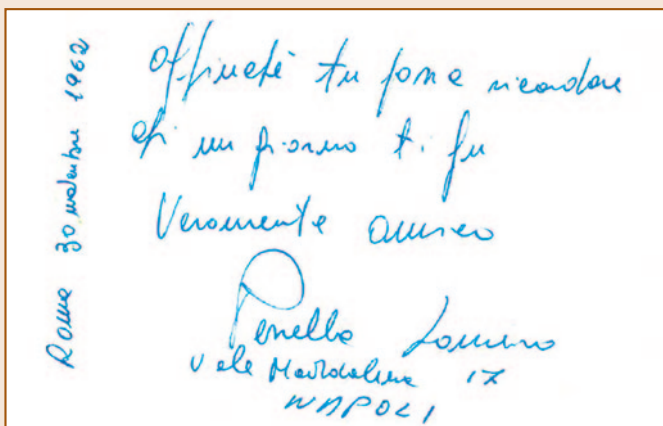 Roma 30 novembre 1962
Affinché tu possa ricordare
chi un giorno ti fu
Veramente amico
V.le Maddalena 17
NAPOLI